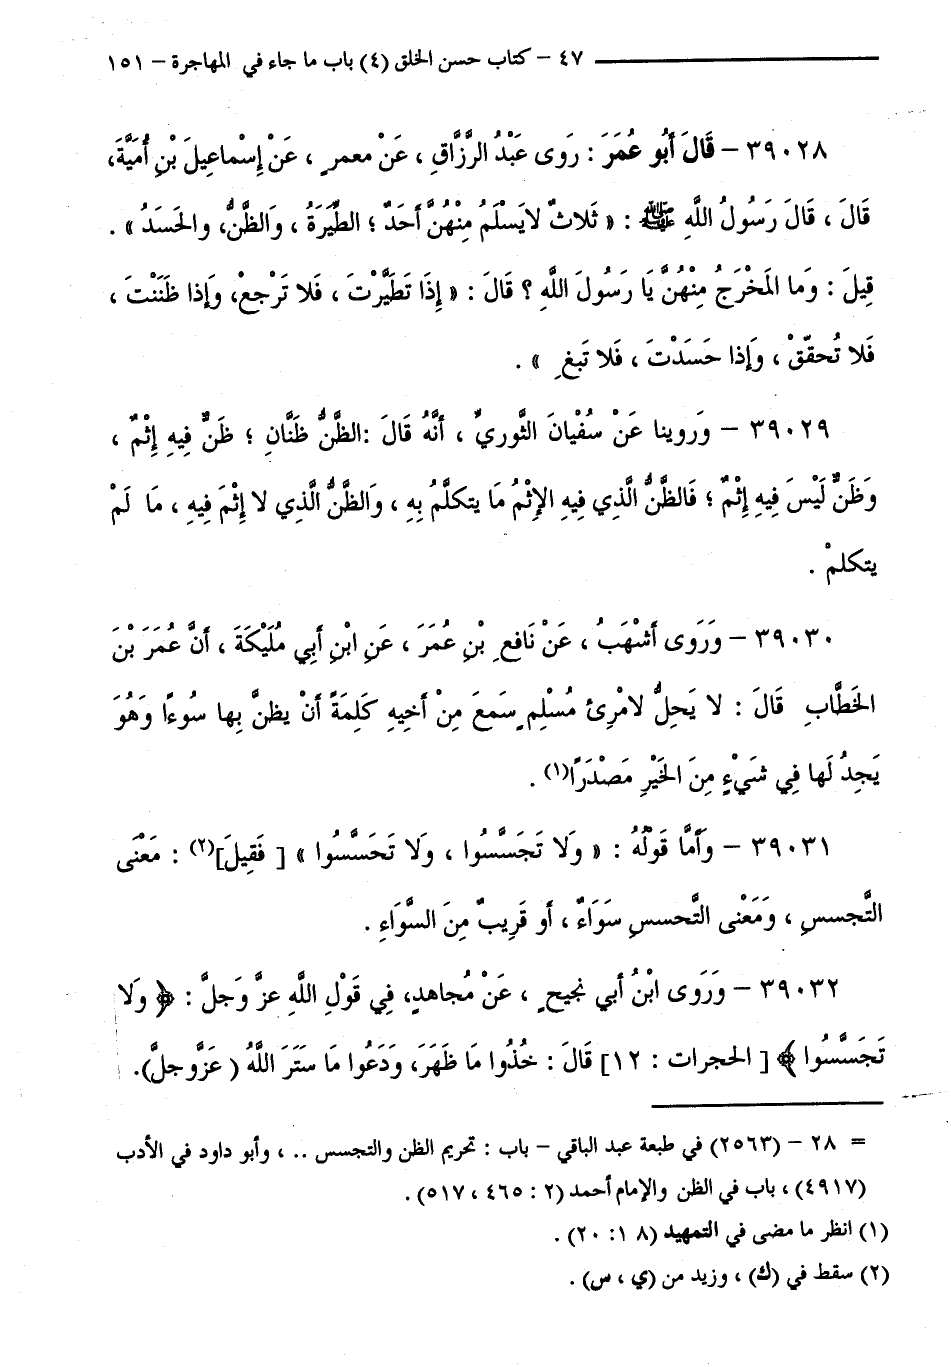 ٤٧ – كتاب حسن الخلق (٤) باب ما جاء في المهاجرة – ١٥١
٣٩٠٢٨ – قَالَ أَبُو عُمَرَ : رَوى عَبْدُ الرَّزَّاقِ ، عَنْ معمرٍ ، عَنْ إِسْماعِيلَ بْنِ أُمَيَّةَ،
قَالَ ، قَالَ رَسُولُ اللَّهِ ﷺ : « ثَلاثٌ لايَسْلَمُ مِنْهُنَّ أَحَدٌ ؛ الطِّيَرَةُ ، وَالظَّنُّ، والحَسَدُ » .
قِيلَ : وَما المَخْرَجُ مِنْهُنَّ يَا رَسُولَ اللَّهِ ؟ قَالَ : « إِذَا تَطَيَّرْتَ ، فَلا تَرْجعْ، وَإِذا ظَنَنْتَ ،
فَلا تُحقّقْ ، وَإِذا حَسَدْتَ ، فَلا تَبغِ » .
٣٩٠٢٩ – وَروينا عَنْ سُفْيانَ الثَّوريِّ ، أَنَّهُ قَالَ :الظَّنُّ ظَنَّانِ ؛ ظَنٌّ فِيهِ إِثْمٌ ،
وَظَنٌّ لَيْسَ فِيهِ إِثْمٌ ؛ فَالظَّنُّ الَّذِي فِيهِ الإِثْمُ مَا يتكلَّمُ بِهِ ، وَالظَّنُّ الَّذِي لا إِثْمَ فِيهِ ، مَا لَمْ
يتكلمْ .
٣٩٠٣٠ – وَرَوى أَشْهَبُ ، عَنْ نَافعِ بْنِ عُمَرَ ، عَنِ ابْنِ أَبِي مُلَيْكَةَ ، أَنَّ عُمَرَ بْنَ
الخَطَّابِ قَالَ : لا يَحِلُّ لامْرِئ مُسْلِمٍ سَمعَ مِنْ أَخِيهِ كَلِمَةً أَنْ يظنَّ بِها سُوءًا وَهُوَ
يَجِدُ لَها فِي شَيْءٍ مِنَ الخَيْرِ مَصْدَرًا(١) .
٣٩٠٣١ – وَأَمَّا قَوْلُهُ : « وَلا تَجَسَّسُوا ، وَلا تَحَسَّسُوا » [ فَقِيلَ](٢) : مَعْنَى
التَّجسسِ ، وَمَعْنى التَّحسسِ سَوَاءٌ ، أَو قَرِيبٌ مِنَ السَّوَاءِ .
٣٩٠٣٢ – وَرَوى ابْنُ أَبي نجيحٍ ، عَنْ مُجاهدٍ، فِي قَوْلِ اللَّهِ عزَّ وَجلَّ : ﴿ وَلَا
تَجَسَّسُوا ﴾ [ الحجرات : ١٢] قَالَ : خُذُوا مَا ظَهَرَ، وَدَعُوا مَا سَتَرَ اللَّهُ ( عَزَّوجلَّ).
= ٢٨ – (٢٥٦٣) في طبعة عبد الباقي – باب : تحريم الظن والتجسس .. ، وأبو داود في الأدب
(٤٩١٧) ، باب في الظن والإمام أحمد (٢ : ٤٦٥ ، ٥١٧) .
(١) انظر ما مضى في التمهيد (٨ ١: ٢٠) .
(٢) سقط في (ك) ، وزيد من (ي ، س) .